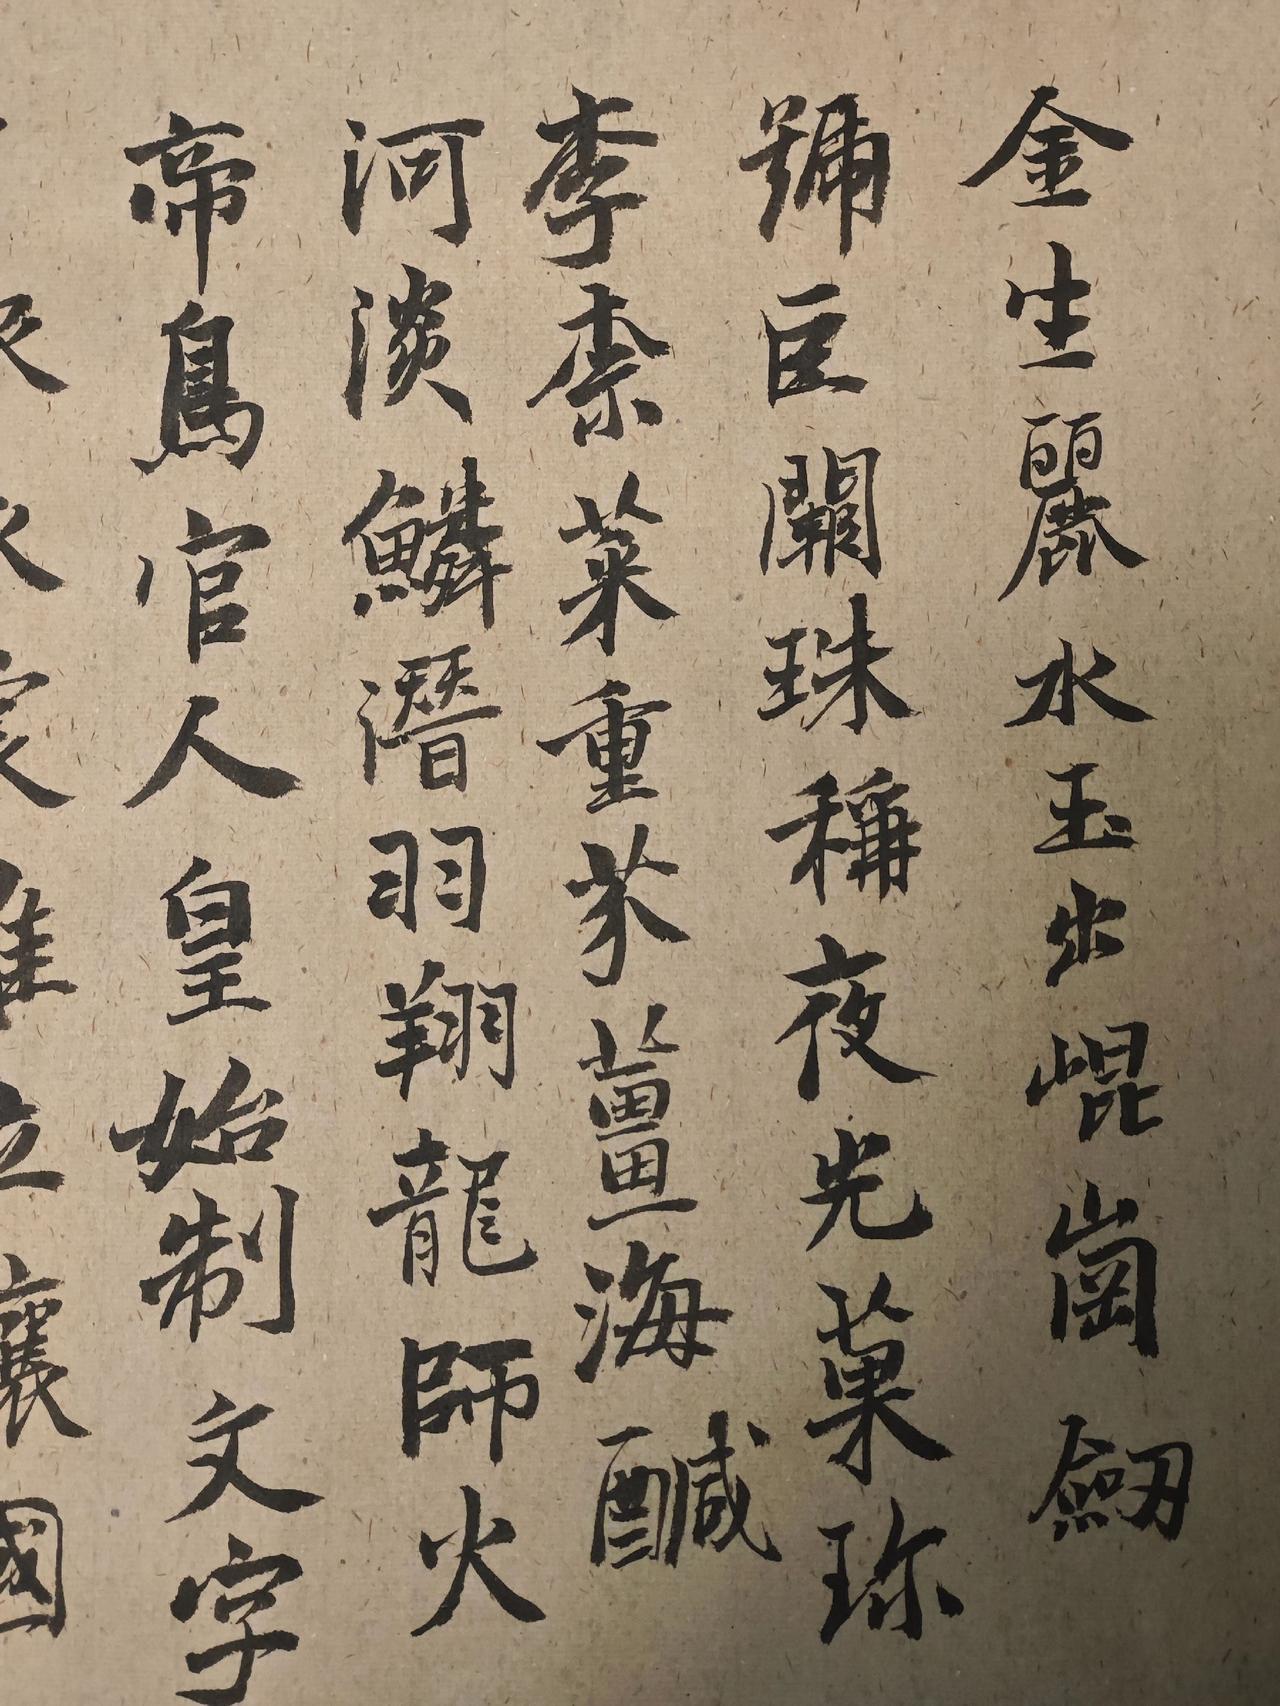 金生麗水玉出崐崗劒
號巨闕珠稱夜光菓珎
李柰菜重芥薑海鹹
河淡鱗潛羽翔龍師火
帝鳥官人皇始制文字